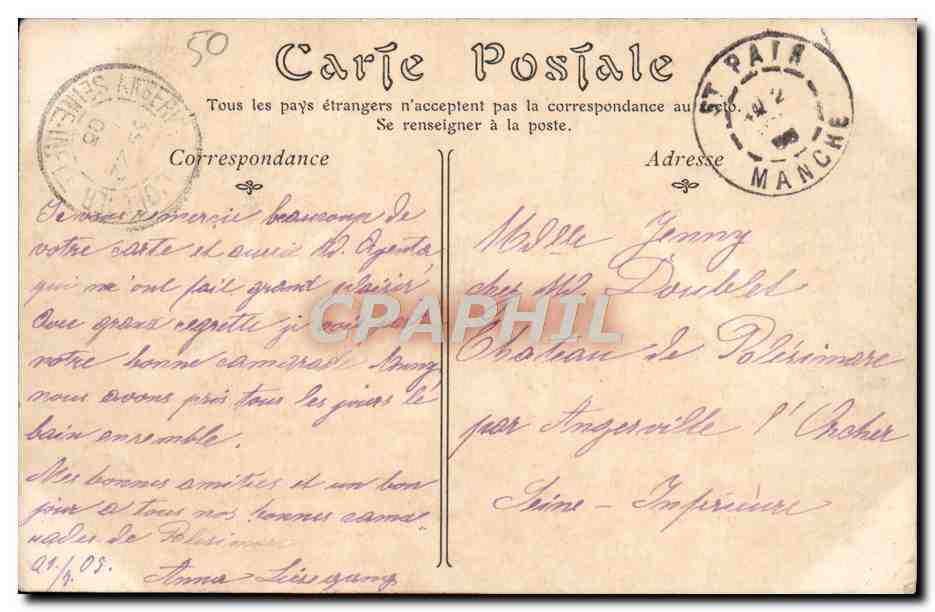 50
Carte Postale
Tous les pays étrangers n'acceptent pas la correspondance au recto.
Se renseigner à la poste.
ST PAIR
MANCHE
Correspondance
Adresse
Je vous remercie beaucoup de
votre carte et aussi M. Agenta,
qui m'ont fait grand plaisir
Avec grand regrette je
notre bonne camarade
nous avons pris tous les jours le
bain ensemble.
Mes bonnes amities et un bon
jour a tous nos bonnes cama-
rades de
Anna Liesegang
Mdlle Jenny
chez M. Doublet
Chateau de
par Angerville l'Orcher
Seine - Inférieure
CPAPHIL